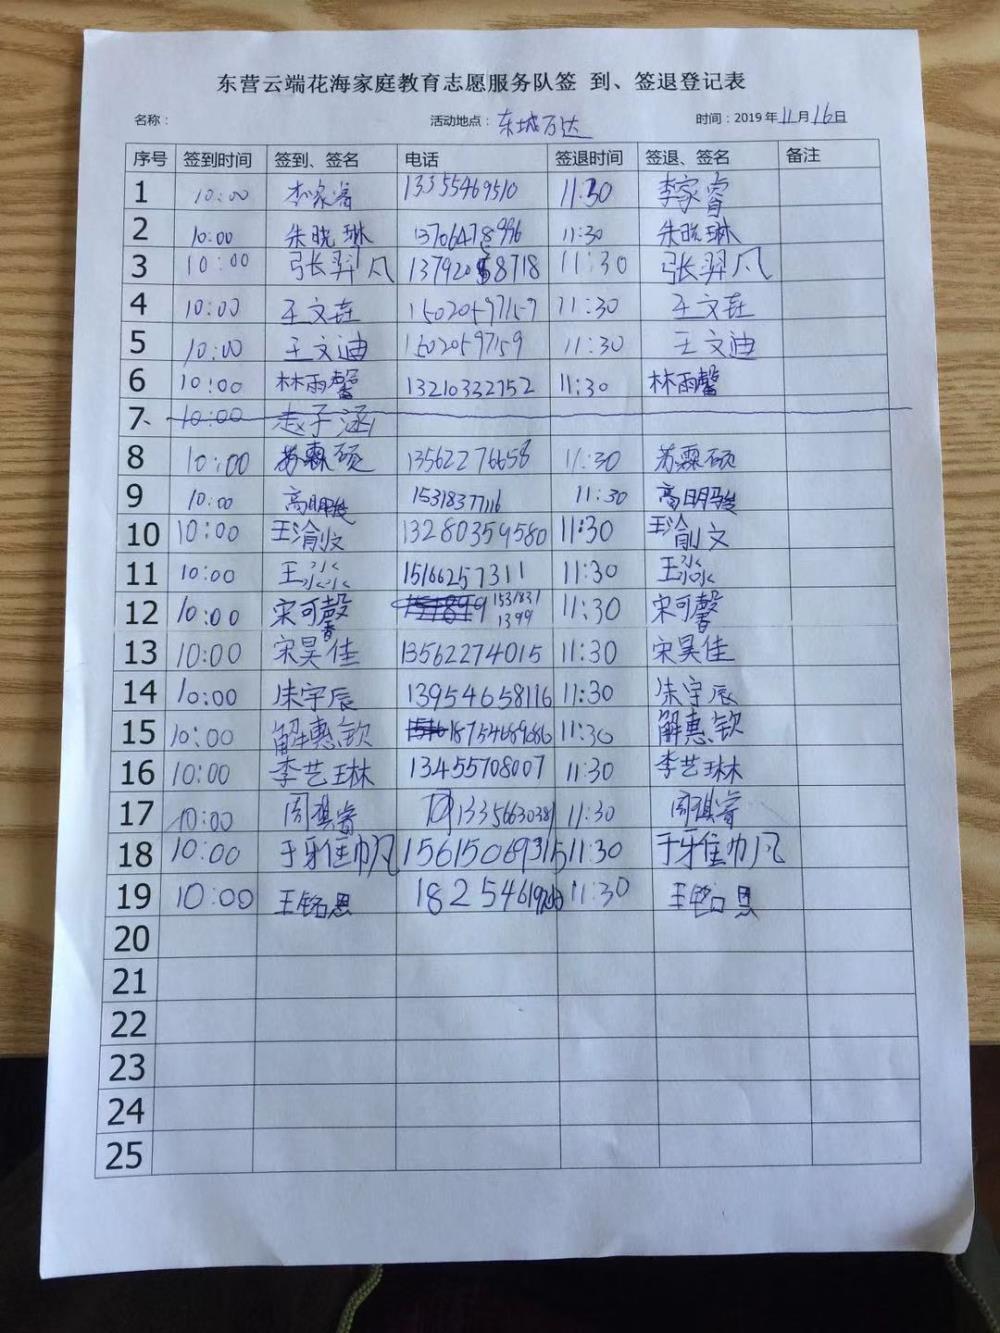 东营云端花海家庭教育志愿服务队签 到、签退登记表
名称： 活动地点：东城万达 时间：2019年11月16日
序号 签到时间 签到、签名 电话 签退时间 签退、签名 备注
1 10:00 李家睿 13355469510 11:30 李家睿
2 10:00 朱晓琳 13706478996 11:30 朱晓琳
3 10:00 张羿凡 11:30 张羿凡
4 10:00 王文垚 15020597159 11:30 王文垚
5 10:00 王文迪 15020597159 11:30 王文迪
6 10:00 林雨馨 13210332752 11:30 林雨馨
7、 10:00 赵子涵
8 10:00 苏霖硕 13562276658 11:30 苏霖硕
9 10:00 高明骏 15318377116 11:30 高明骏
10 10:00 王渝文 13280359580 11:30 王渝文
11 10:00 王淼 15166257311 11:30 王淼
12 10:00 宋可馨 15318311399 11:30 宋可馨
13 10:00 宋昊佳 13562274015 11:30 宋昊佳
14 10:00 朱宇辰 13954658116 11:30 朱宇辰
15 10:00 解惠钦 18754689686 11:30 解惠钦
16 10:00 李艺琳 13455708007 11:30 李艺琳
17 10:00 周祺睿 13356630381 11:30 周祺睿
18 10:00 15615069315 11:30
19 10:00 王铭恩 11:30 王铭恩
20
21
22
23
24
25